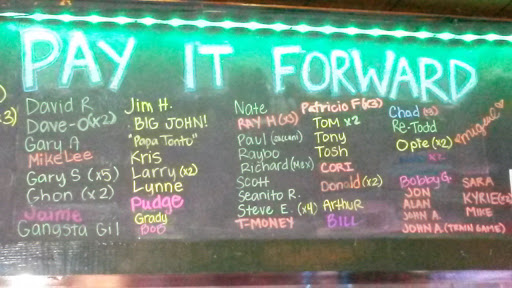 PAY IT FORWARD
David R
Dave-O (x2)
Gary A
Mike Lee
Gary S (x5)
Ghon (x2)
Jaime
Gangsta Gil
Jim H.
BIG JOHN!
"Papa Tonto"
Kris
Larry (x2)
Lynne
Pudge
Grady
BOB
Nate
RAY H (x3)
Paul
Raybo
Richard (MEX)
Scott
Seanito R.
Steve E. (x4)
T-MONEY
Patricio F (x3)
TOM x2
Tony
Tosh
CORI
Donald (x2)
ArthuR
BILL
Chad (x3)
Re-Todd
Opte (x2)
x2
Bobby G.
JON
ALAN
JOHN A.
JOHN A. (TRAIN GAME)
miguel
SARA
KYRIE (x2)
MIKE